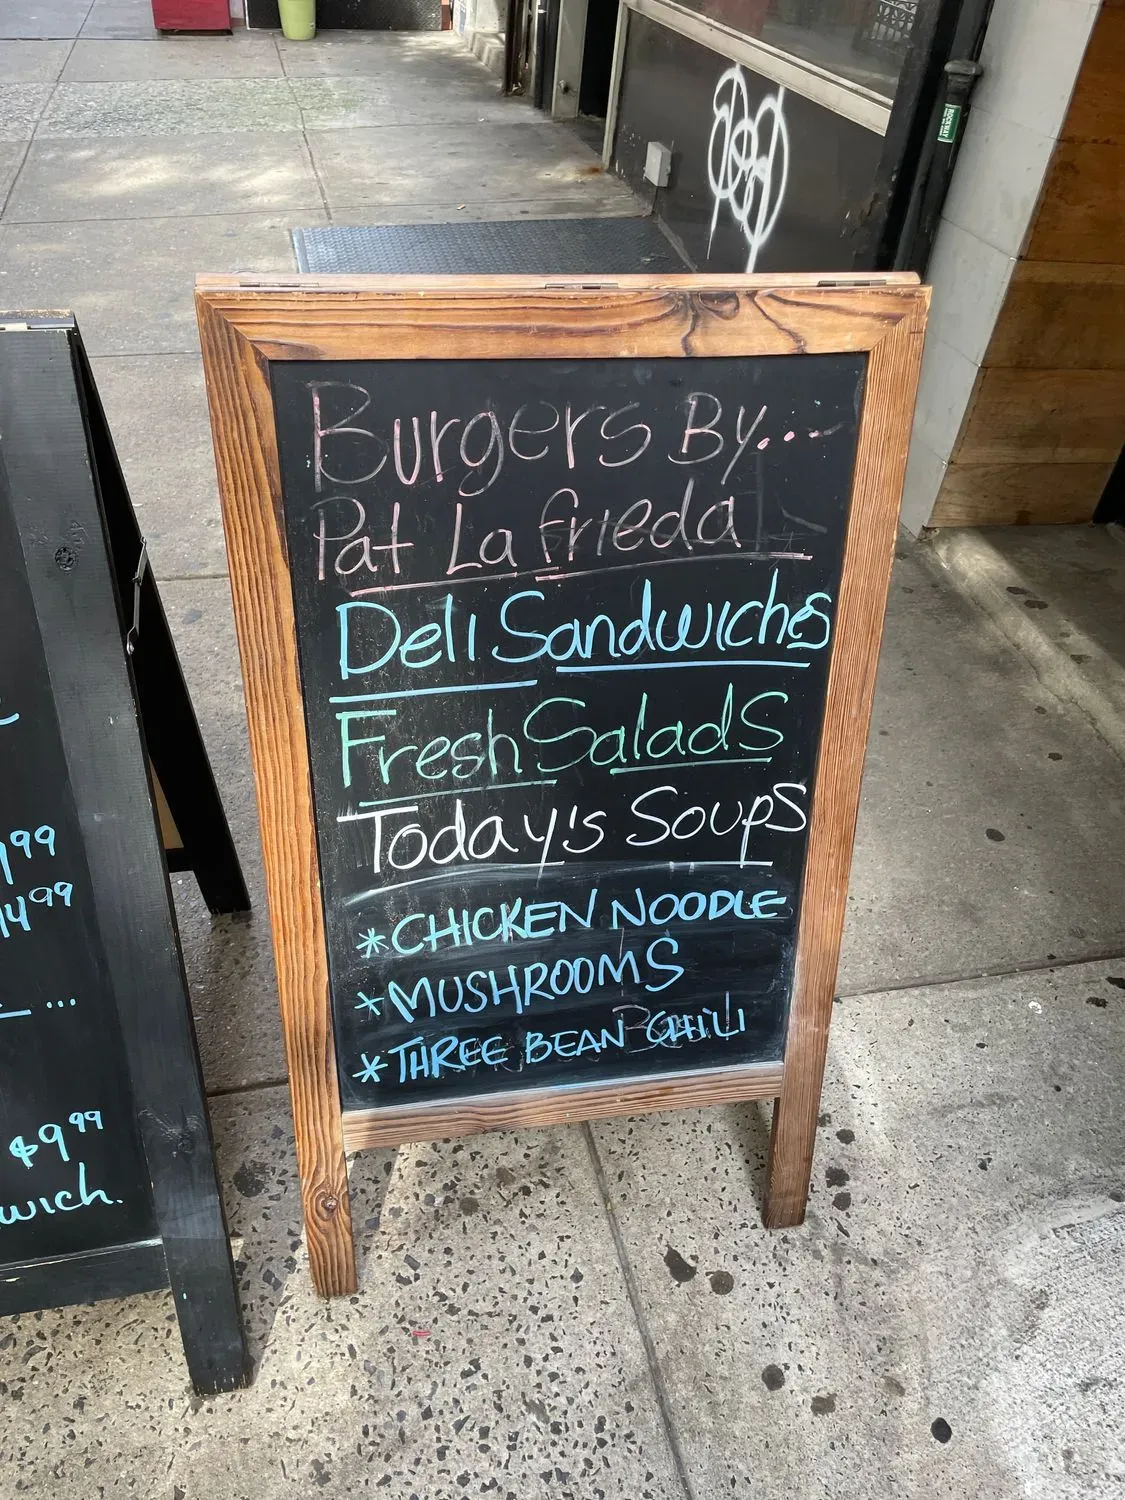 Burgers By...
Pat Lafrieda
Deli Sandwiches
Fresh Salads
Today's Soups
*CHICKEN NOODLE
*MUSHROOMS
*THREE BEAN CHILI
99
14 99
...
$9 99
wich.
ROCKWAY